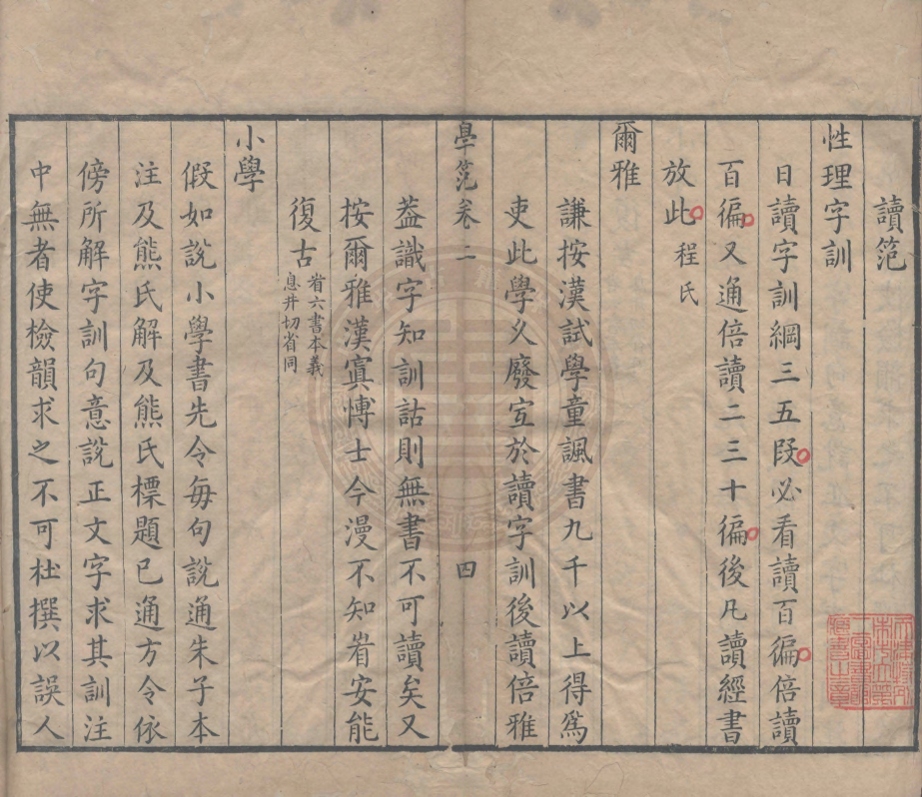 讀笵
性理字訓
日讀字訓綱三五段必看讀百徧倍讀
百徧又通倍讀二三十徧後凡讀經書
放此程氏
爾雅
謙按漢試學童諷書九千以上得爲
吏此學久廢宜於讀字訓後讀倍雅
𭓕笵卷二 四
葢識字知訓詁則無書不可讀矣又
按爾雅漢寘愽士今漫不知㾪安能
復古㾪六書本義
息井切省同
小學
假如說小學書先令每句說通朱子本
注及熊氏解及熊氏標題已通方令依
傍所解字訓句意說正文字求其訓注
中無者使檢韻求之不可杜撰以誤人